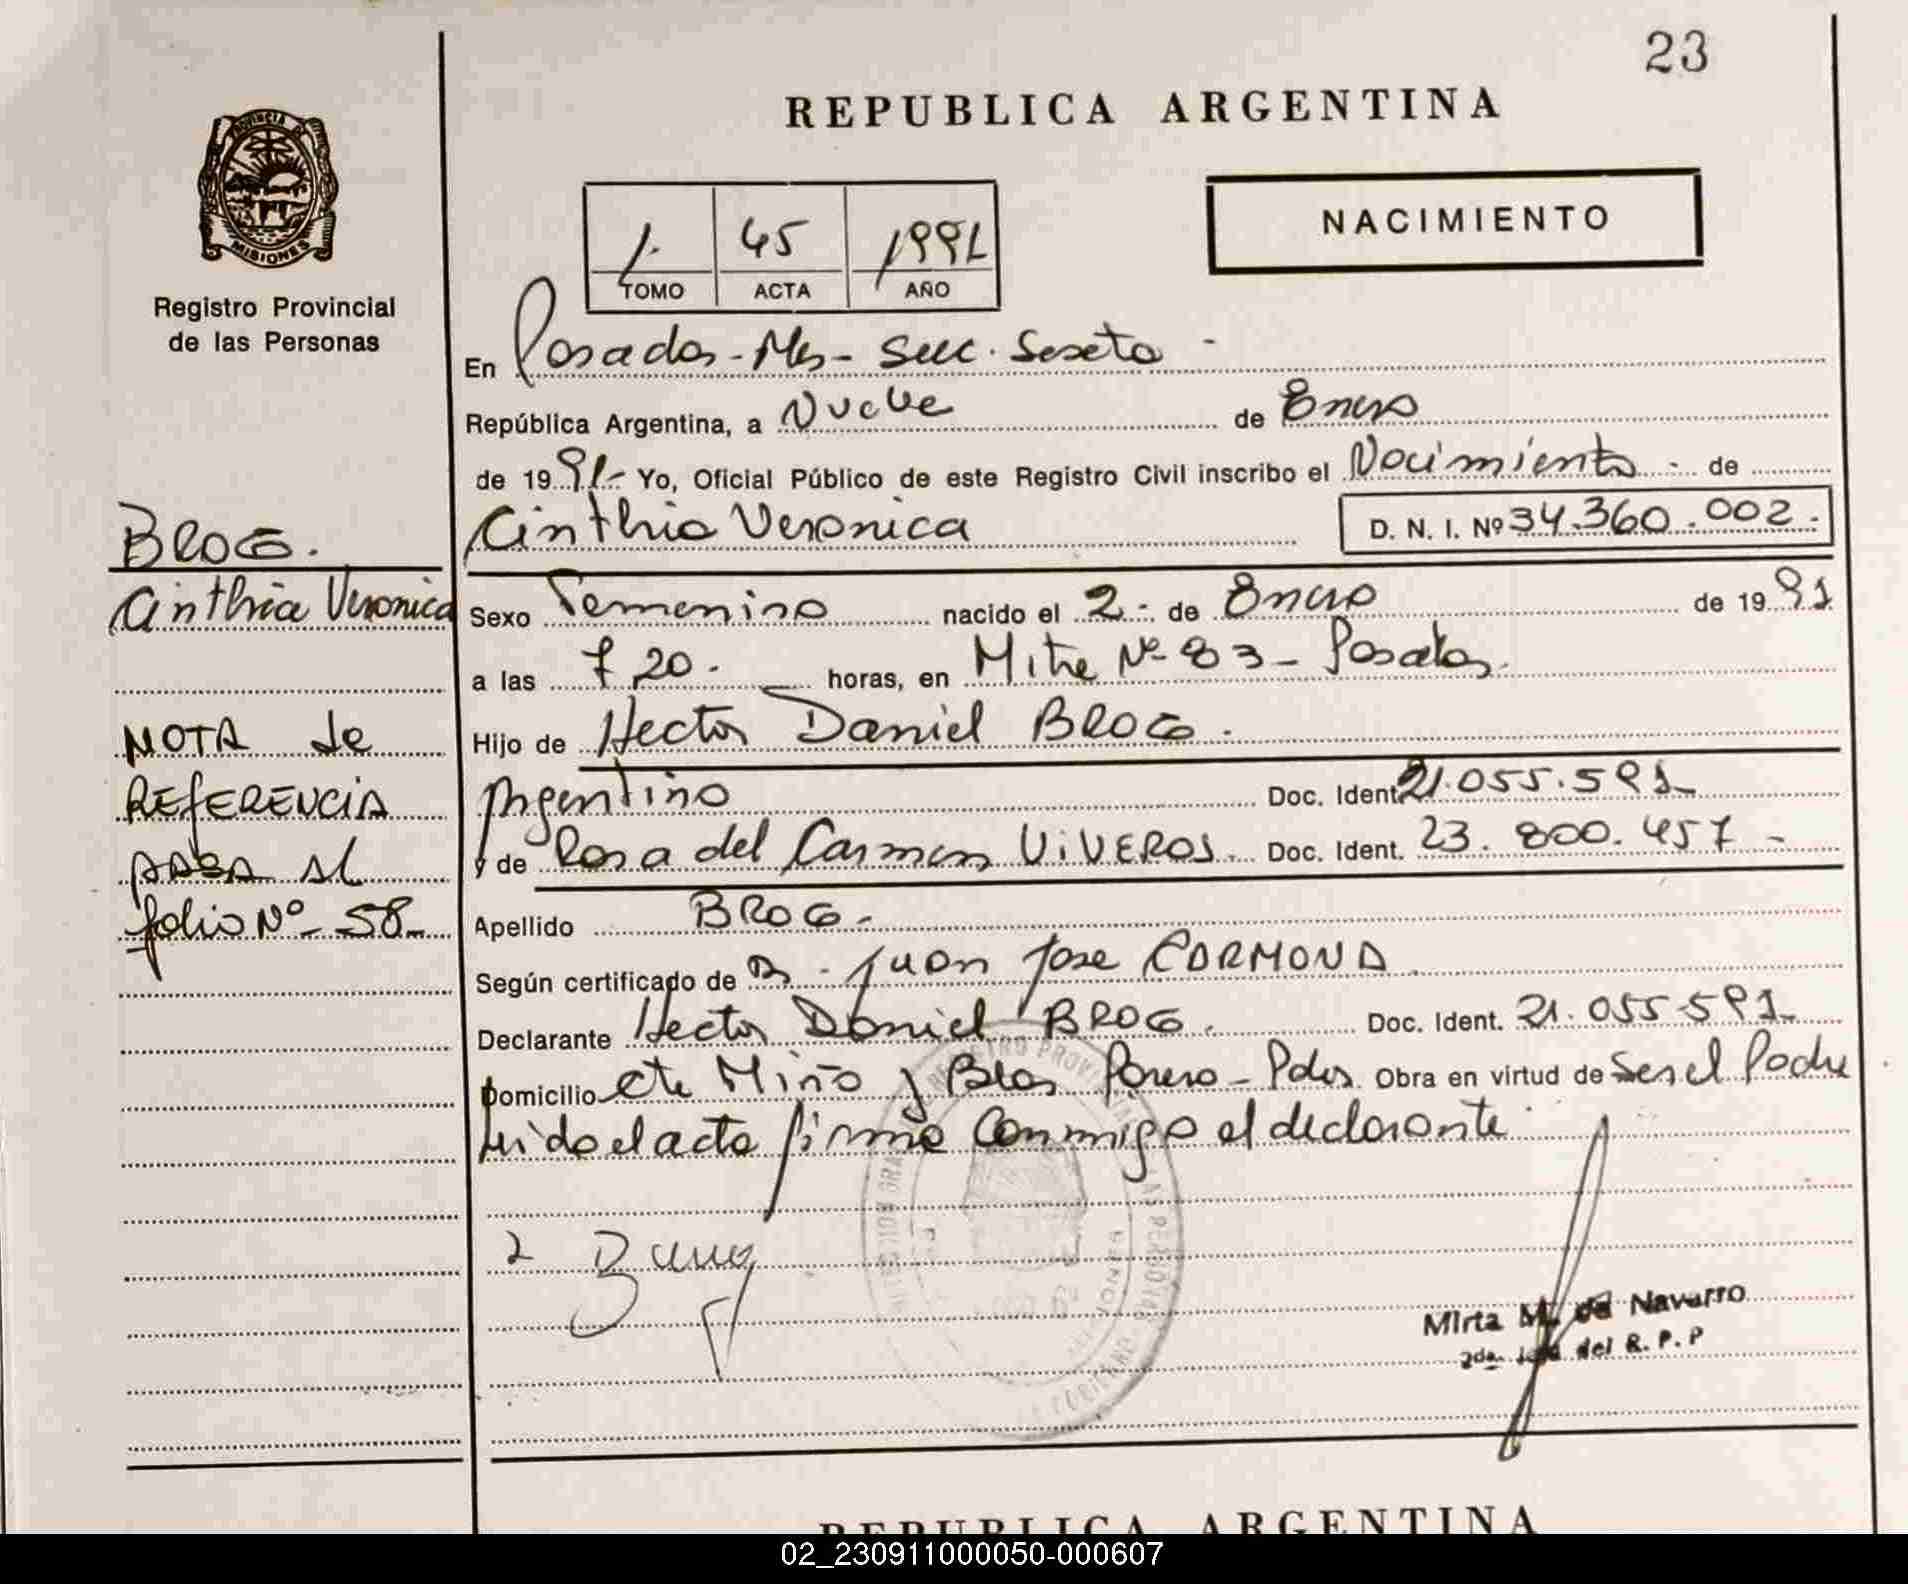 23
REPUBLICA ARGENTINA
PROVINCIA DE
MISIONES
Registro Provincial
de las Personas
1. 45 1991
TOMO ACTA AÑO
NACIMIENTO
En Posadas - Mns - Secc. Sexta -
República Argentina, a Nueve de Enero
de 1991- Yo, Oficial Público de este Registro Civil inscribo el Nacimiento - de
Cinthia Veronica D. N. I. Nº 34.360.002.
BROG.
Cinthia Veronica
Sexo Femenino nacido el 2 - de Enero de 1991
a las 7 20. horas, en Mitre Nº 83 - Posadas.
Hijo de Hector Daniel BROG.
Argentino Doc. Ident. 21.055.591-
y de Rosa del Carmen VIVEROS. Doc. Ident. 23.800.457 -
Apellido BROG.
NOTA de
REFERENCIA
PASA al
folio Nº - 58 -
Según certificado de Dr. Juan Jose CARMONA
Declarante Hector Daniel BROG. Doc. Ident. 21.055.591-
Domicilio Miño y Blas Parera - Pdas Obra en virtud de Ser el Padre
Leido el acta firma conmigo el declarante
Mirta M. de Navarro
2da. Jefa del R. P. P
REPUBLICA ARGENTINA
02_230911000050-000607